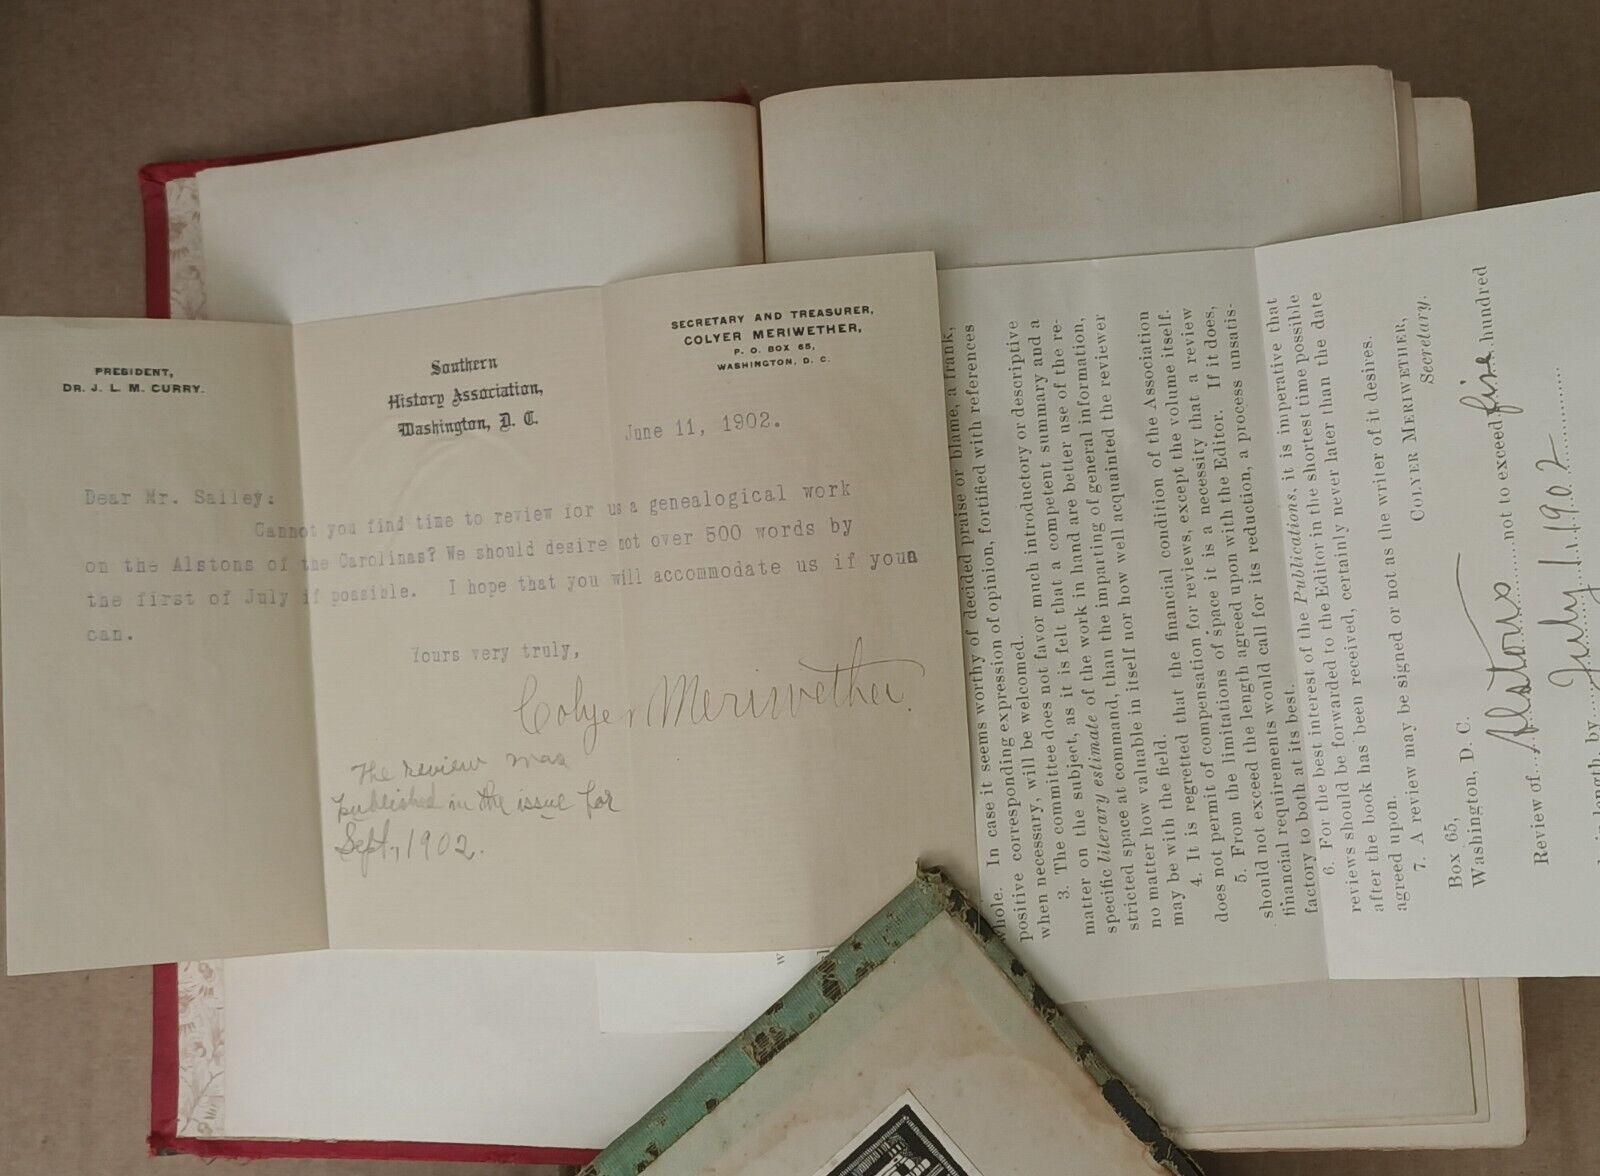 PRESIDENT,
DR. J. L. M. CURRY.
Southern
History Association,
Washington, D. C.
SECRETARY AND TREASURER,
COLYER MERIWETHER,
P. O. BOX 65,
WASHINGTON, D. C.
June 11, 1902.
Dear Mr. Salley:
Cannot you find time to review for us a genealogical work
on the Alstons of the Carolinas? We should desire not over 500 words by
the first of July if possible. I hope that you will accommodate us if you
can.
Yours very truly,
Colyer Meriwether.
The review was
published in the issue for
Sept., 1902.
whole. In case it seems worthy of decided praise or blame, a frank,
positive corresponding expression of opinion, fortified with references
when necessary, will be welcomed.
3. The committee does not favor much introductory or descriptive
matter on the subject, as it is felt that a competent summary and a
specific literary estimate of the work in hand are better use of the re-
stricted space at command, than the imparting of general information,
no matter how valuable in itself nor how well acquainted the reviewer
may be with the field.
4. It is regretted that the financial condition of the Association
does not permit of compensation for reviews, except the volume itself.
5. From the limitations of space it is a necessity that a review
should not exceed the length agreed upon with the Editor. If it does,
financial requirements would call for its reduction, a process unsatis-
factory to both at its best.
6. For the best interest of the Publications, it is imperative that
reviews should be forwarded to the Editor in the shortest time possible
after the book has been received, certainly never later than the date
agreed upon.
7. A review may be signed or not as the writer of it desires.
COLYER MERIWETHER,
Secretary.
Box 65,
Washington, D. C.
Review of Alstons not to exceed five hundred
in length, by July 1 1902